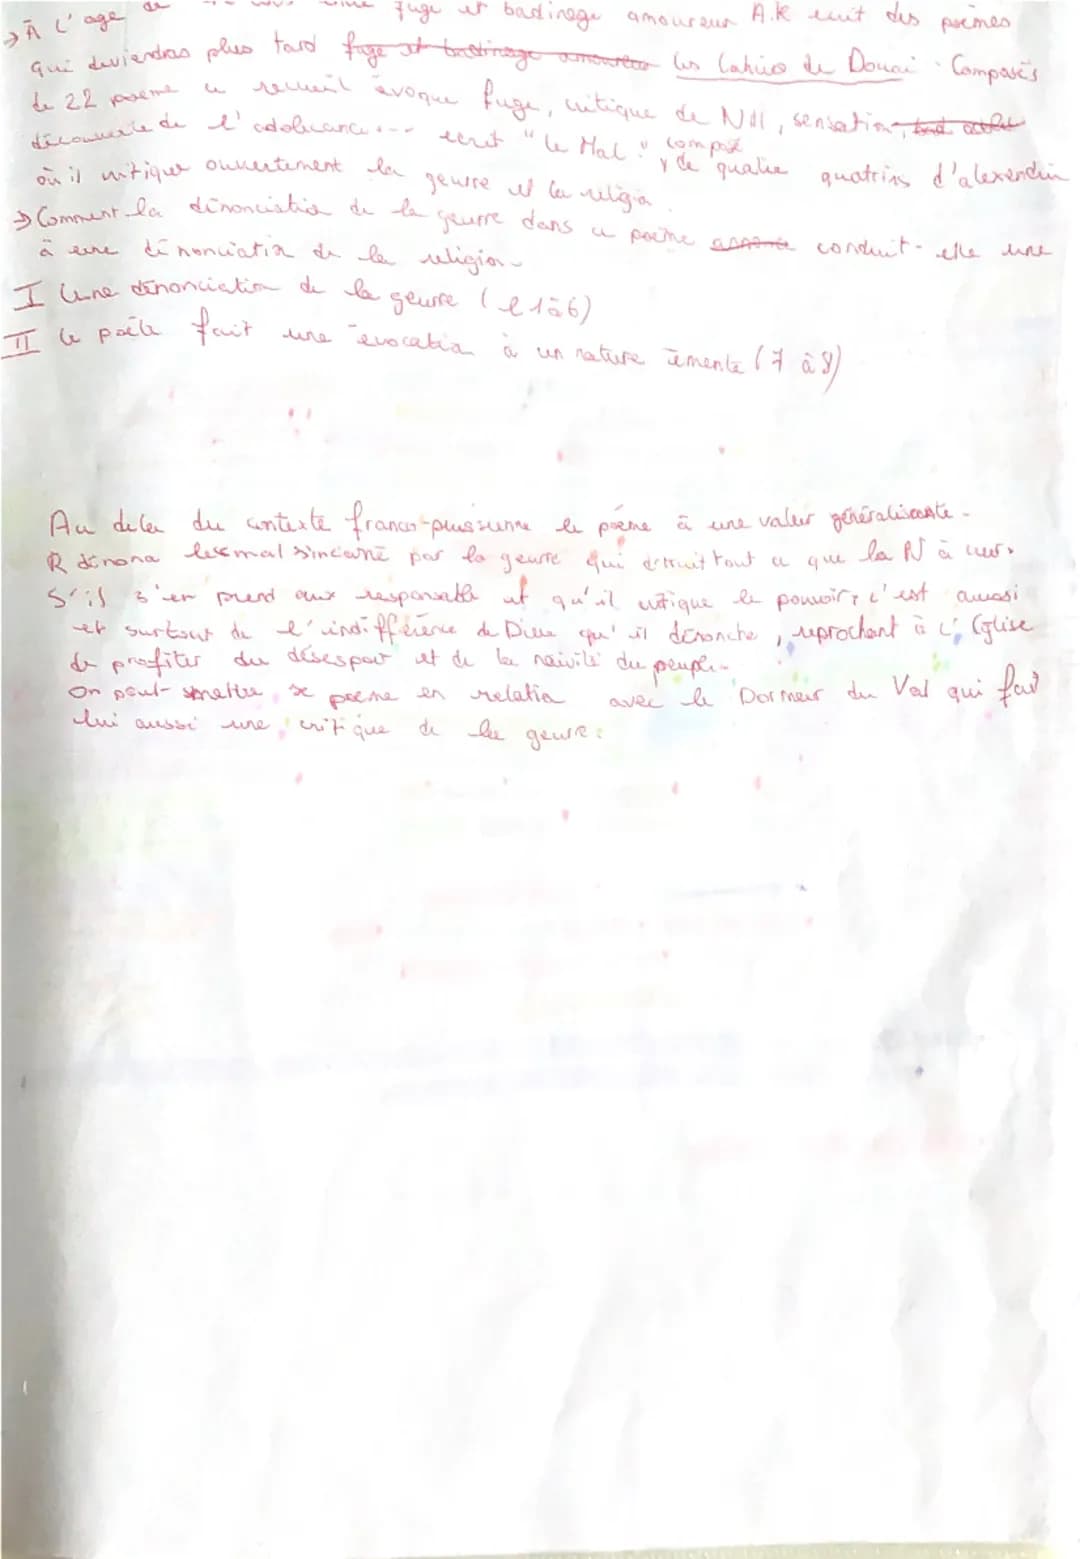 → À l'age de fuge et badinage amoureux A.R ecrit des poèmes
qui deviendras plus tard fuge et badinage amoureux les Cahiers de Douai. Composés
de 22 poeme ce recueil évoque fuge, critique de NIII, sensation,
découverte de l'adolescance... ecrit "le Mal" composé de quatre quatrins d'alexendrin
où il critique ouvertement la geurre et la religion.
→ Comment la dénonciation de la geurre dans ce poème conduit-elle une
à une dénonciation de la religion.
I Une dénonciation de la geurre (l 1 à 6)
II le poète fait une évocation à un nature émente (7 à 8)
Au dela du contexte franco-prussienne le poème à une valeur généralisante.
R dénonce les mal s'incarné par la geurre qui detruit tout ce que la N à creer.
S'il s'en prend aux responsable et qu'il critique le pouvoir, c'est aussi
et surtout de l'indifférence de Dieu qu'il dénonche, reprochant à l'Eglise
de profiter du désespoir et de la naivité du peuple.
On peut smettre se poeme en relation avec le Dormeur du Val qui fait
lui aussi une critique de la geurre.